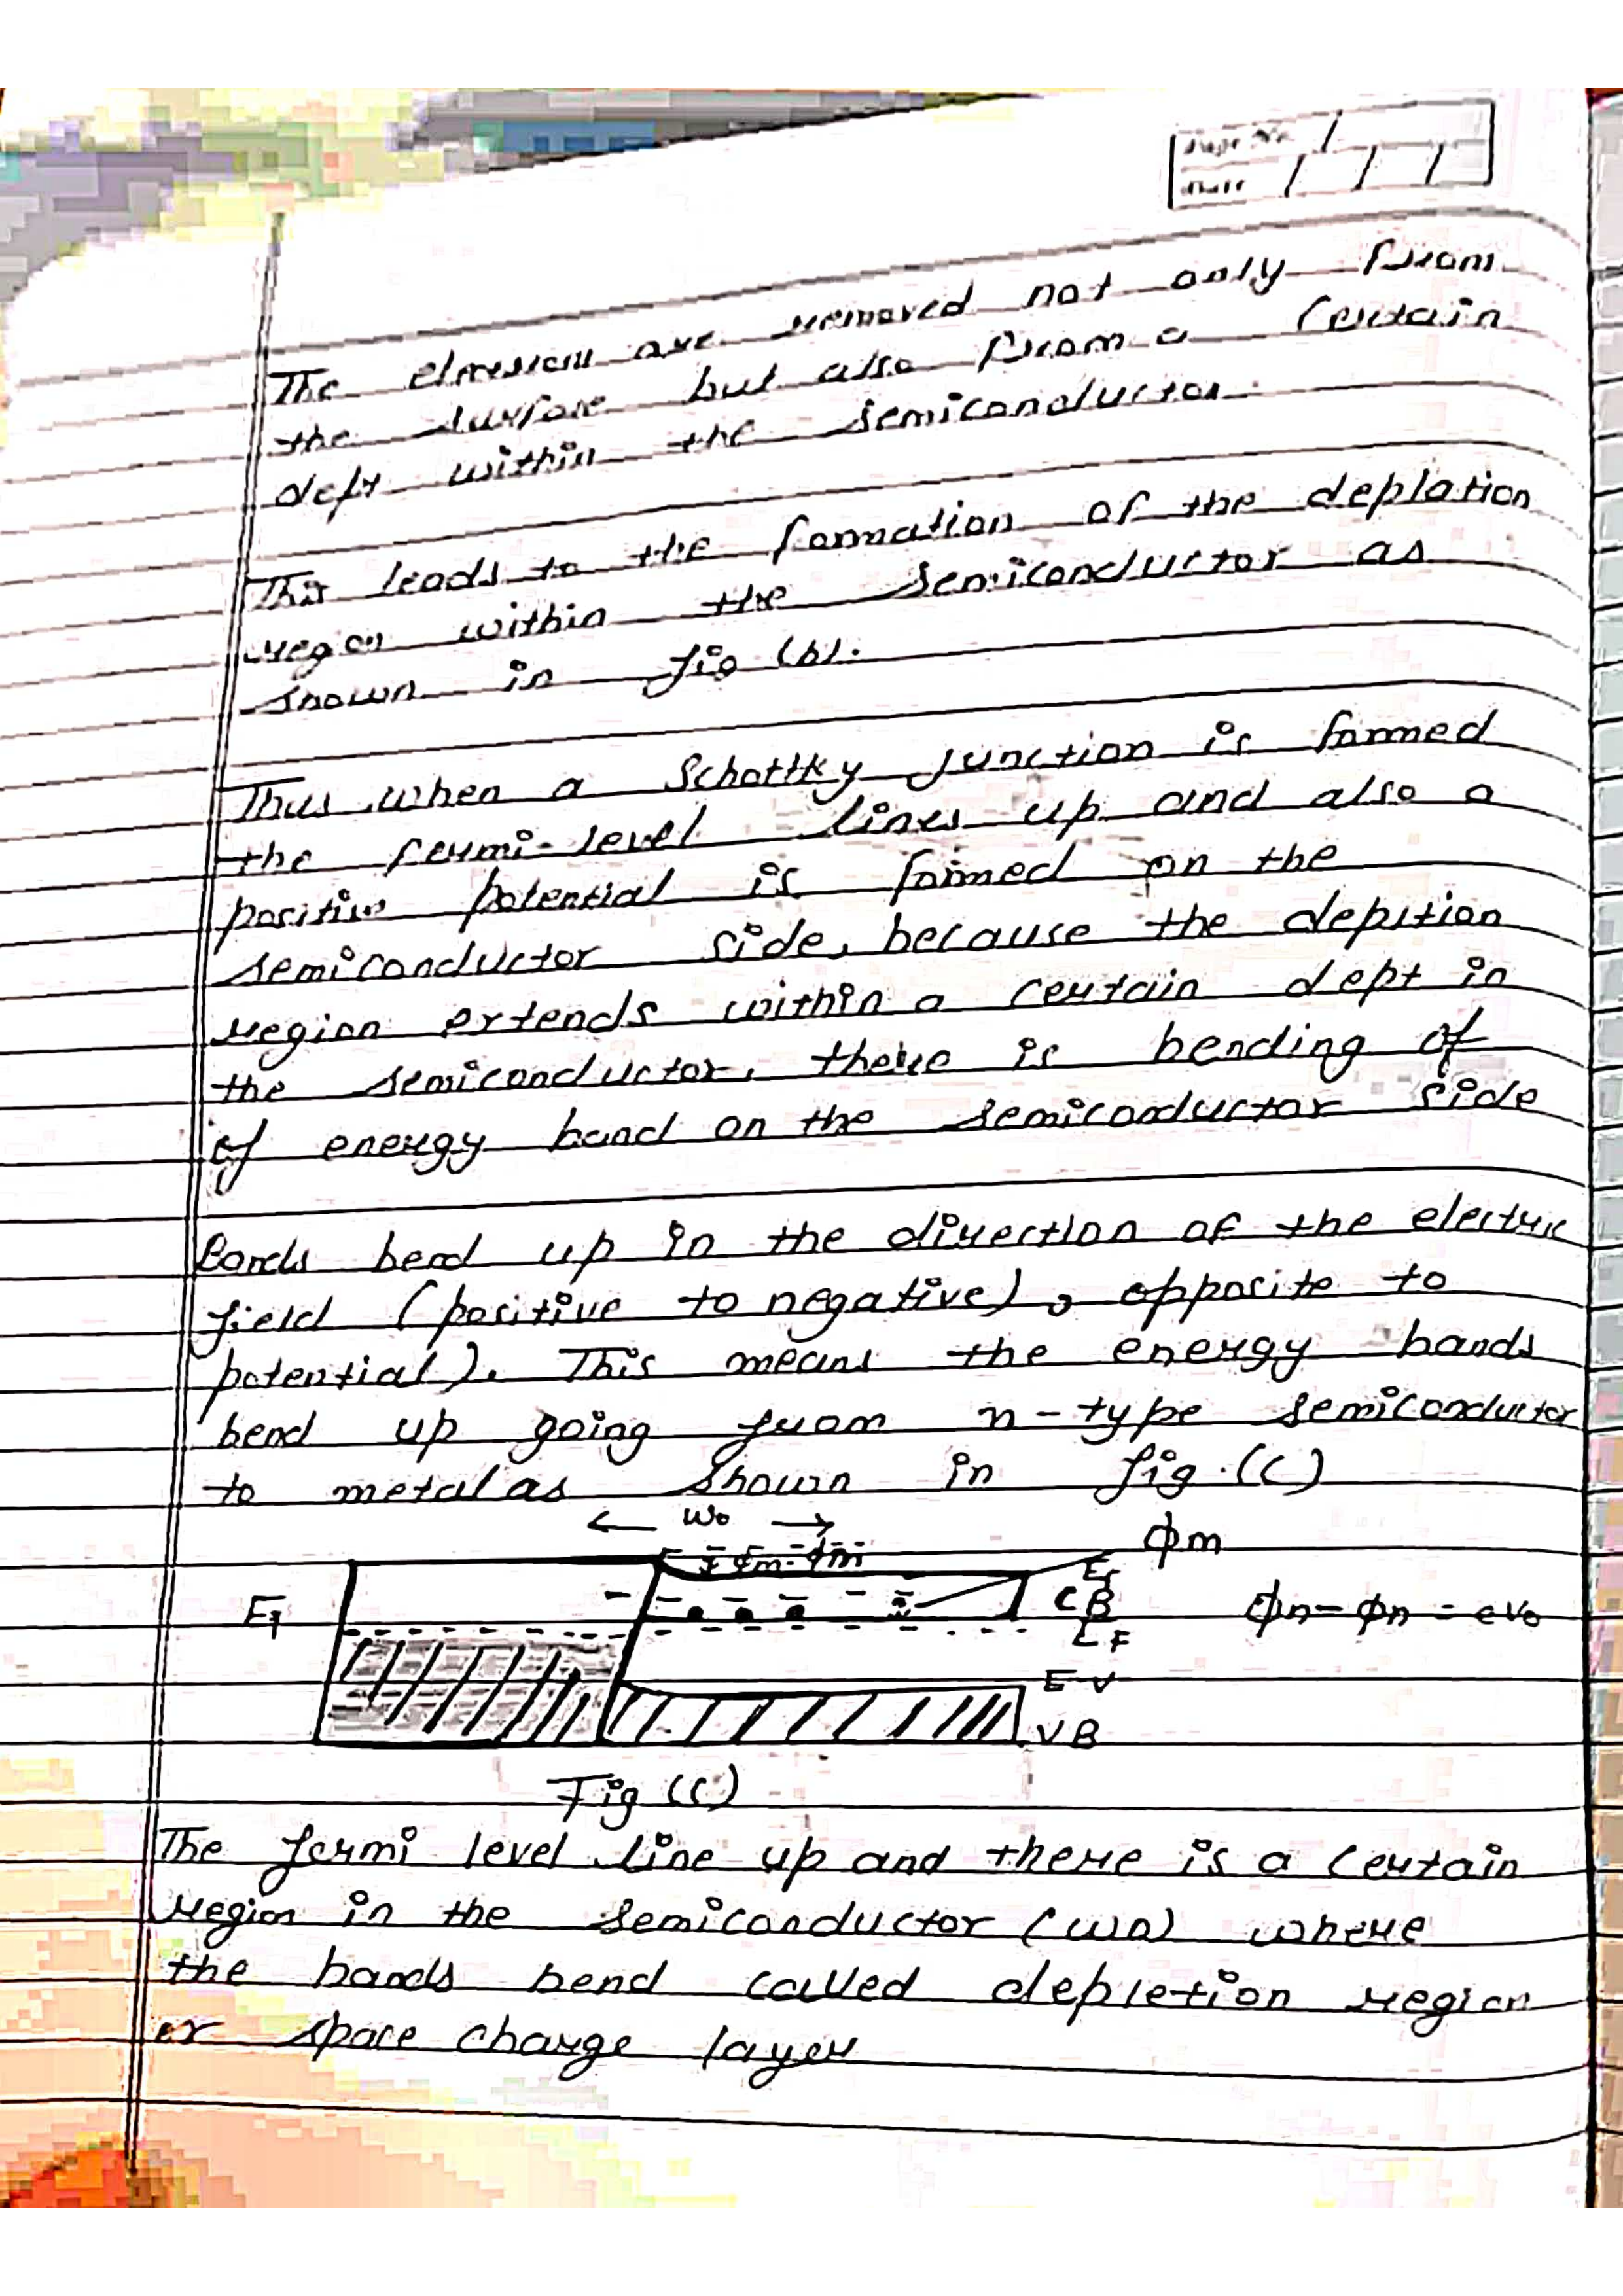 Page No. /
Date / / /
The are removed not only from
the but also from a certain
dept within the semiconductor.
This leads to the formation of the deplation
region within the semiconductor as
shown in fig (b).
Thus when a Schottky Junction is formed
the fermi-level lines up and also a
positive potential is formed on the
semiconductor side, because the
region extends within a certain dept in
the semiconductor, there is bending of
of energy band on the semiconductor side
Bands bend up in the direction of the electric
field (positive to negative), opposite to
potential). This means the energy bands
bend up going from n-type semiconductor
to metal as shown in fig.(c)
← W₀ →
ϕm
EF CB ϕn-ϕn = eV₀
EV
VB
Fig (c)
The fermi level line up and there is a certain
region in the semiconductor where
the bands bend called depletion region
or space charge layer